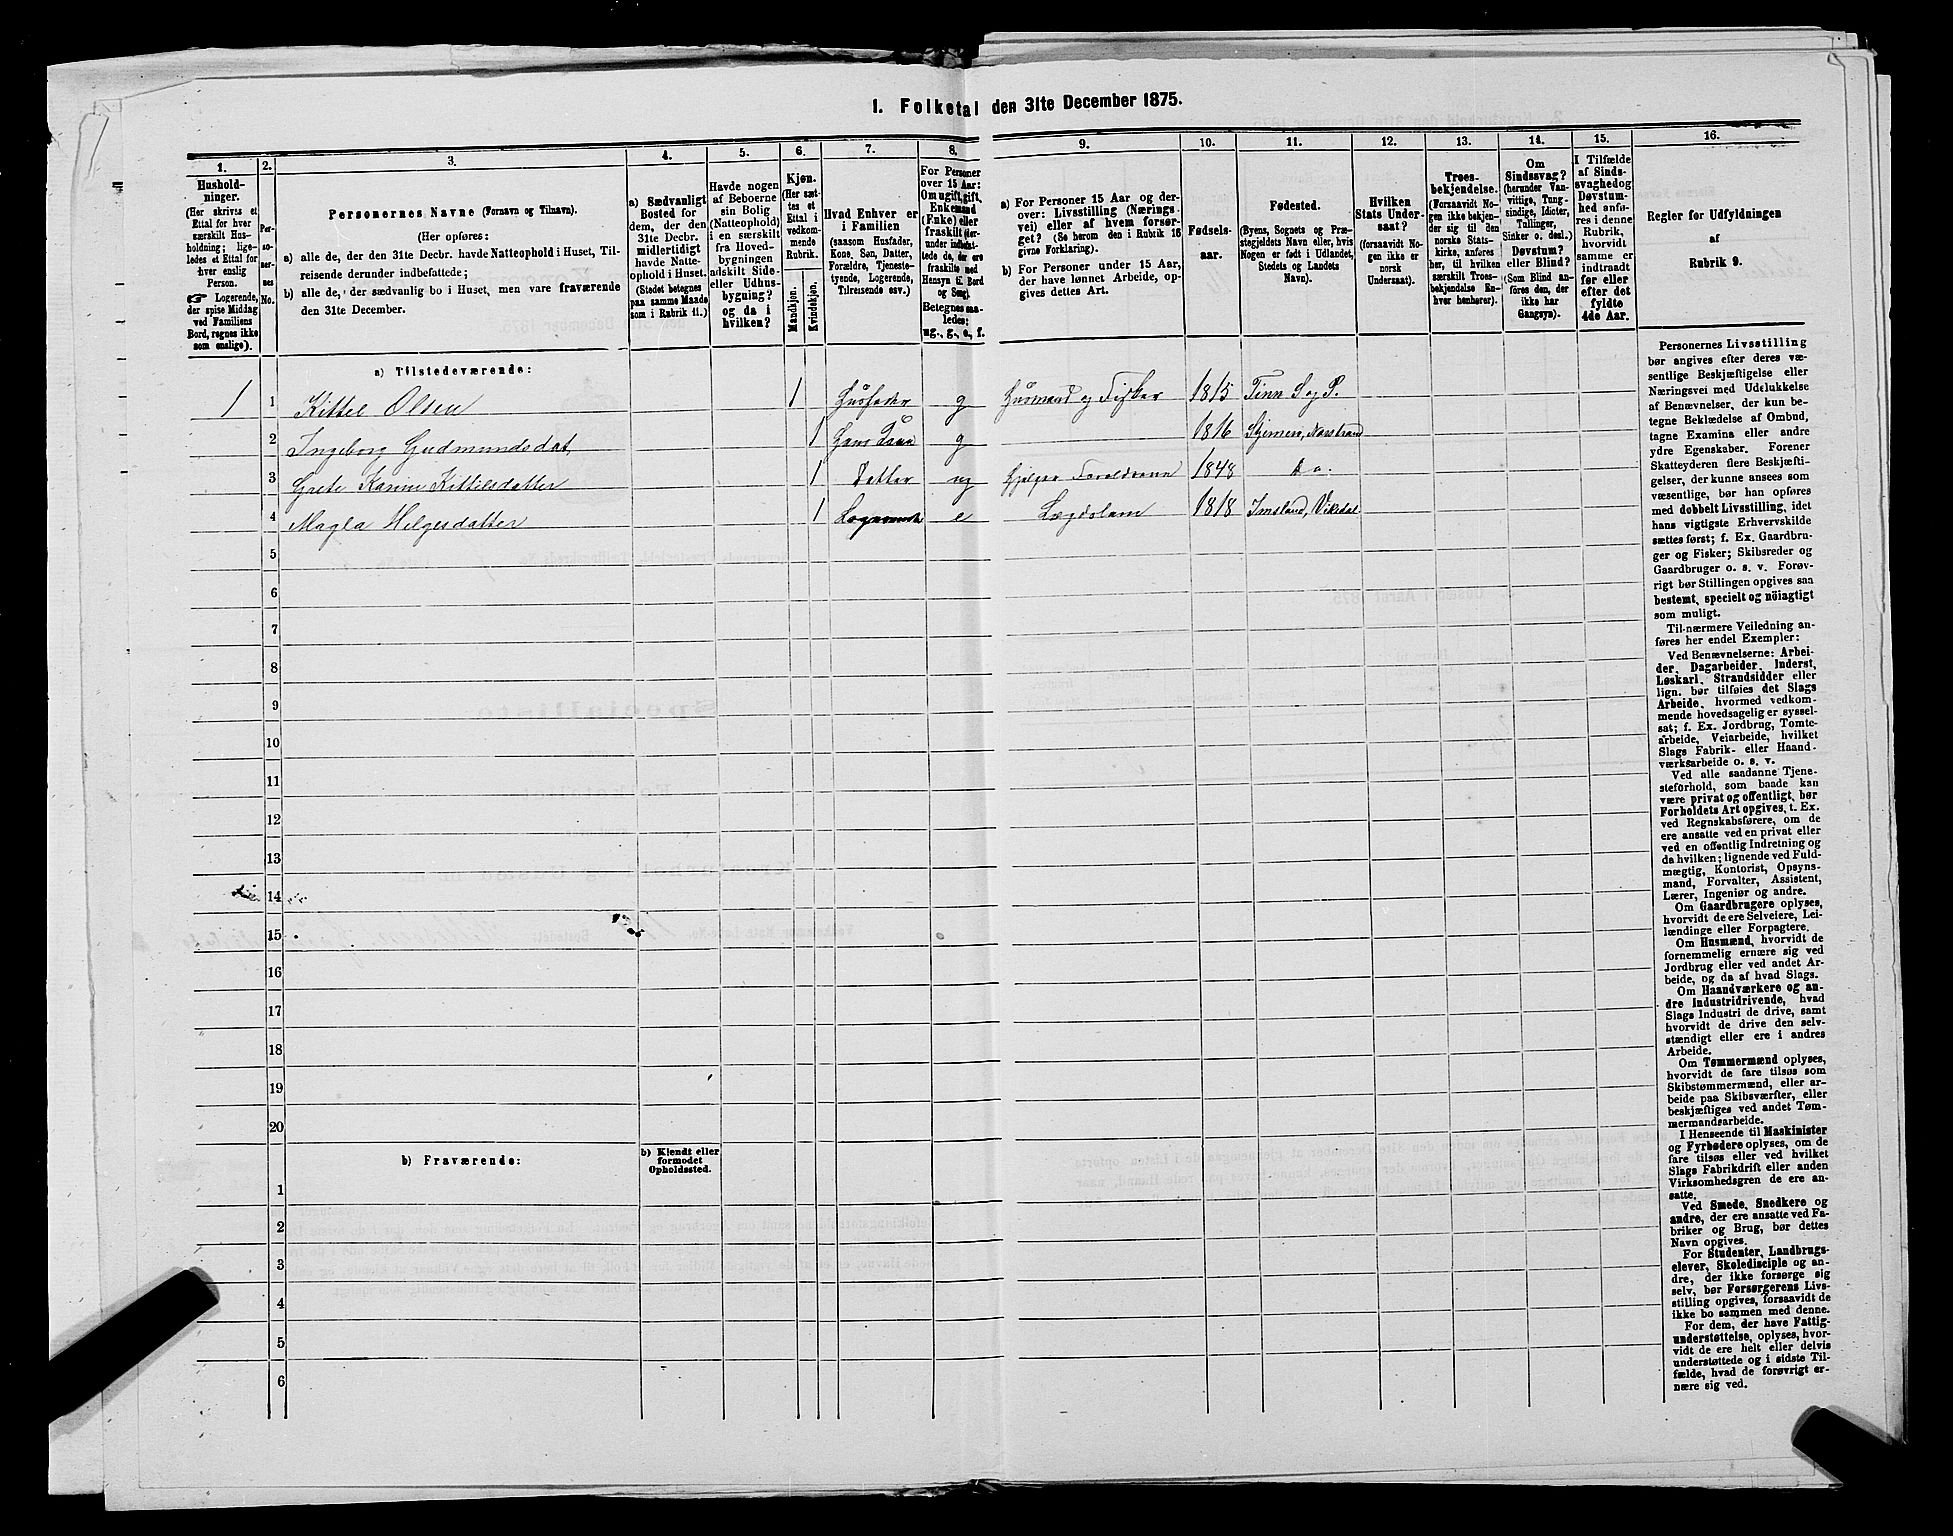 1. Folketal den 31te December 1875.
1.
2.
3.
4.
5.
6.
7.
8.
9.
10.
11.
12.
13.
14.
15.
16.
Hushold-
ninger.
(Her skrives et
Ettal for hver
særskilt Hus-
holdning; lige-
ledes et Ettal for
hver enslig
Person.
☞ Logerende,
der spise Middag
ved Familiens
Bord, regnes ikke
som enslige).
Per-
so-
ner-
nes
No.
Personernes Navne (Fornavn og Tilnavn).
(Her opføres:
a) alle de, der den 31te Decbr. havde Natteophold i Huset, Til-
reisende derunder indbefattede;
b) alle de, der sædvanlig bo i Huset, men vare fraværende
den 31te December.
a) Sædvanligt
Bosted for
dem, der den
31te Decbr.
midlertidigt
havde Natte-
ophold i Huset.
(Stedet betegnes
paa samme Maade
som i Rubrik 11.)
Havde nogen
af Beboerne
sin Bolig
(Natteophold)
i en særskilt
fra Hoved-
bygningen
adskilt Side-
eller Udhus-
bygning?
og da i
hvilken?
Kjøn.
(Her sæt-
tes et
Ettal i
vedkom-
mende
Rubrik.
Mandkjøn.
Kvindekjøn.
Hvad Enhver er
i Familien
(saasom Husfader,
Kone, Søn, Datter,
Forældre, Tjeneste-
tyende, Logerende,
Tilreisende osv.)
For Personer
over 15 Aar:
Om ugift, gift,
Enkemand
(Enke) eller
fraskilt (her-
under indbefat-
tede de, der ere
fraskilte med
Hensyn til Bord
og Seng).
Betegnes saa-
ledes:
ug., g., e., f.
a) For Personer 15 Aar og der-
over: Livsstilling (Nærings-
vei) eller af hvem forsør-
get? (Se herom den i Rubrik 16
givne Forklaring).
b) For Personer under 15 Aar,
der have lønnet Arbeide, op-
gives dettes Art.
Fødsels-
aar.
Fødested.
(Byens, Sognets og Præ-
stegjeldets Navn eller, hvis
Nogen er født i Udlandet,
Stedets og Landets
Navn).
Hvilken
Stats Under-
saat?
(forsaavidt No-
gen ikke er
norsk
Undersaat).
Troes-
bekjendelse.
(Forsaavidt No-
gen ikke bekjen-
der sig til den
norske Stats-
kirke, anføres
her, til hvilken
særskilt Troes-
bekjendelse En-
hver henhører).
Om
Sindssvag?
(herunder Van-
vittige, Tung-
sindige, Idioter,
Tullinger,
Sinker o. desl.)
Døvstum?
eller Blind?
(Som Blind an-
føres den, der
ikke har
Gangsyn).
I Tilfælde
af Sinds-
svaghed og
Døvstum-
hed anfø-
res i denne
Rubrik,
hvorvidt
samme er
indtraadt
før eller
efter det
fyldte
4de Aar.
Regler for Udfyldningen
af
Rubrik 9.
a) Tilstedeværende:
1 1 Kittel Olsen 1 Husfader g Husmand og Fisker 1815 Tinn S. og P.
2 Ingeborg Gudmundsdat. 1 Hans g 1816
3 Grete Karine Kittilsdatter 1 Datter ug Hjelper 1848 Do.
4 Magla Helgesdatter 1 e Lægdslem 1818 Imsland, Vikedal
5
6
7
8
9
10
11
12
13
14
15
16
17
18
19
20
b) Fraværende:
b) Kjendt eller
formodet
Opholdssted.
1
2
3
4
5
6
Personernes Livsstilling
bør angives efter deres væ-
sentlige Beskjæftigelse eller
Næringsvei med Udelukkelse
af Benævnelser, der kun be-
tegne Beklædelse af Ombud,
tagne Examina eller andre
ydre Egenskaber. Forener
Skatteyderen flere Beskjæfti-
gelser, der kunne ansees som
væsentlige, bør han opføres
med dobbelt Livsstilling, idet
hans vigtigste Erhvervskilde
sættes først; f. Ex. Gaardbru-
ger og Fisker; Skibsreder og
Gaardbruger o. s. v. Forøv-
rigt bør Stillingen opgives saa
bestemt, specielt og nöiagtigt
som muligt.
Til nærmere Veiledning an-
føres her endel Exempler:
Ved Benævnelserne: Arbei-
der, Dagarbeider, Inderst,
Løskarl, Strandsidder eller
lign. bør tilføies det Slags
Arbeide, hvormed vedkom-
mende hovedsagelig er syssel-
sat; f. Ex. Jordbrug, Tomte-
arbeide, Veiarbeide, hvilket
Slags Fabrik- eller Haand-
værksarbeide o. s. v.
Ved alle saadanne Tjene-
steforhold, som baade kan
være privat og offentligt, bør
Forholdets Art opgives, t. Ex.
ved Regnskabsførere, om de
ere ansatte ved en privat eller
ved en offentlig Indretning og
da hvilken; lignende ved Fuld-
mægtig, Kontorist, Opsyns-
mand, Forvalter, Assistent,
Lærer, Ingeniør og andre.
Om Gaardbrugere oplyses,
hvorvidt de ere Selveiere, Lei-
lændinge eller Forpagtere.
Om Husmænd, hvorvidt de
fornemmelig ernære sig ved
Jordbrug eller ved andet Ar-
beide, og da af hvad Slags.
Om Haandværkere og an-
dre Industridrivende, hvad
Slags Industri de drive, samt
hvorvidt de drive den selv-
stændigt eller ere i andres
Arbeide.
Om Tømmermænd oplyses,
hvorvidt de fare tilsøs som
Skibstømmermænd, eller ar-
beide paa Skibsværfter, eller
beskjæftiges ved andet Tøm-
mermandsarbeide.
I Henseende til Maskinister
og Fyrbødere oplyses, om de
fare tilsøs eller ved hvilket
Slags Fabrikdrift eller anden
Virksomhedsgren de ere an-
satte.
Ved Smede, Snedkere og
andre, der ere ansatte ved Fa-
briker og Brug, bør dettes
Navn opgives.
For Studenter, Landbrugs-
elever, Skoledisciple og an-
dre, der ikke forsørge sig
selv, bør Forsørgerens Livs-
stilling opgives, forsaavidt de
ikke bo sammen med denne.
For dem, der have Fattig-
understøttelse, oplyses, hvor-
vidt de ere helt eller delvis
understøttede og i sidste Til-
fælde, hvad de forøvrigt er-
nære sig ved.